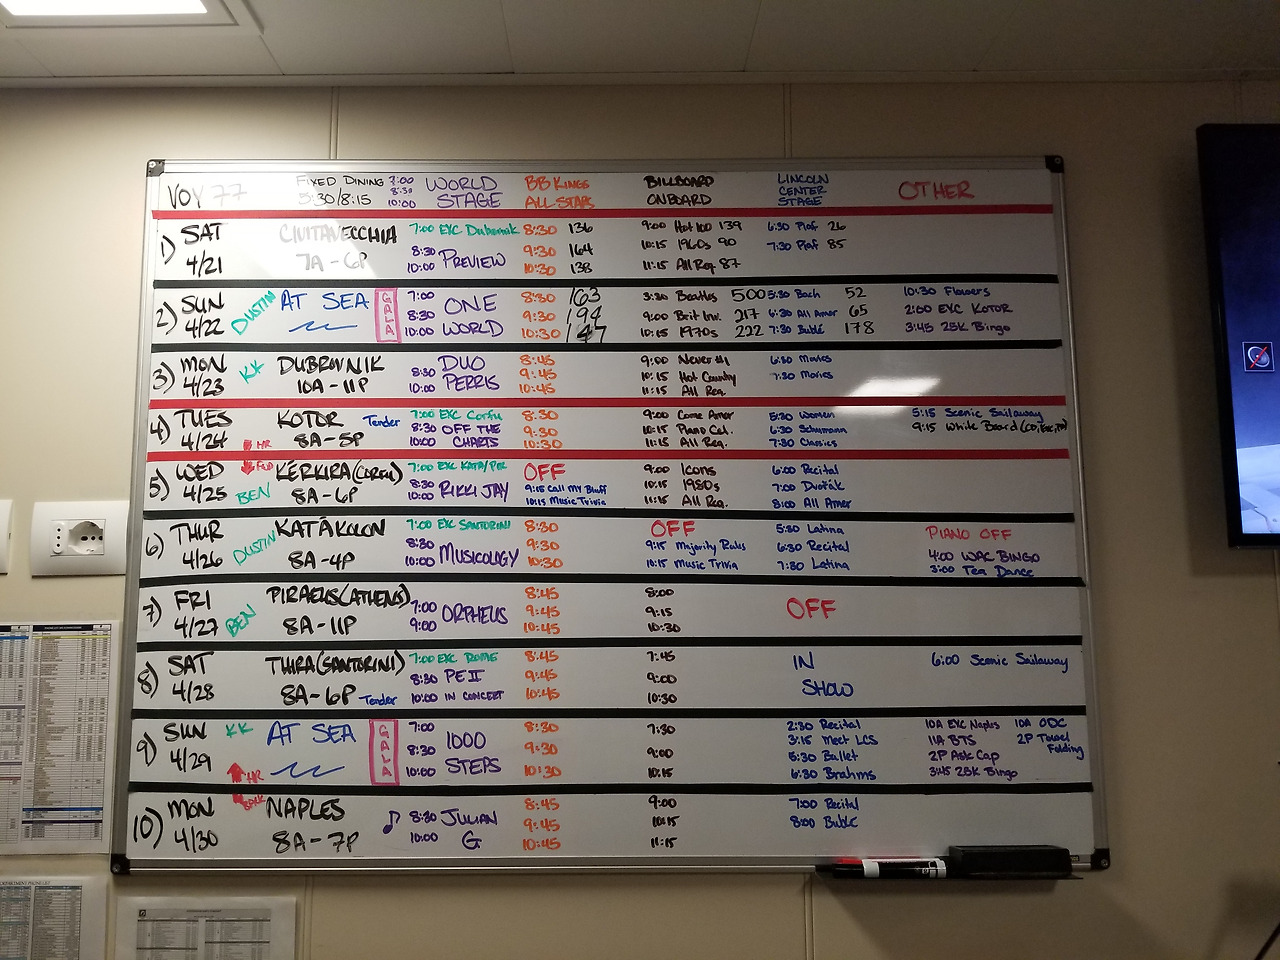 VOY 77 FIXED DINING 7:00 WORLD BB KINGS BILLBOARD LINCOLN OTHER
5:30/8:15 8:30 STAGE ALL STARS ONBOARD CENTER
10:00 STAGE
1) SAT CIVITAVECCHIA 7:00 EXC Dubrovnik 8:30 136 9:00 Hot 100 139 6:30 Piaf 26
4/21 7A - 6P 8:30 PREVIEW 9:30 164 10:15 1960s 90 7:30 Piaf 85
10:00 10:30 138 11:15 All Req. 87
2) SUN DUSTIN AT SEA GALA 7:00 ONE 8:30 163 3:30 Beatles 500 5:30 Bach 52 10:30 Flowers
4/22 8:30 WORLD 9:30 194 9:00 Brit Inv. 217 6:30 All Amer 65 2:00 EXC KOTOR
10:00 10:30 147 10:15 1970s 222 7:30 Bublé 178 3:45 25K Bingo
3) MON KK DUBROVNIK DUO 8:45 9:00 Never #1 6:30 Movies
4/23 10A - 11P 8:30 PERRIS 9:45 10:15 Hot Country 7:30 Movies
10:00 10:45 11:15 All Req.
4) TUES KOTOR Tender 7:00 EXC Corfu 8:30 9:00 Come Amer 5:30 Women 5:15 Scenic Sailaway
4/24 8A - 5P 8:30 OFF THE 9:30 10:15 Piano Cal. 6:30 Schumann 9:15 White Board
HR 10:00 CHARTS 10:30 11:15 All Req. 7:30 Classics
5) WED FWD KÉRKIRA (CORFU) 7:00 EXC KATA/PIR OFF 9:00 Icons 6:00 Recital
4/25 BEN 8A - 6P 8:30 RIKKI JAY 9:15 Call My Bluff 10:15 1980s 7:00 Dvořák
10:00 10:15 Music Trivia 11:15 All Req. 8:00 All Amer
6) THUR DUSTIN KATÁKOLON 7:00 EXC SANTORINI 8:30 OFF 5:30 Latina PIANO OFF
4/26 8A - 4P 8:30 MUSICOLOGY 9:30 9:15 Majority Rules 6:30 Recital 4:00 WAC BINGO
10:00 10:30 10:15 Music Trivia 7:30 Latina 3:00 Tea Dance
7) FRI BEN PIRAEUS (ATHENS) 7:00 ORPHEUS 8:45 8:00 OFF
4/27 8A - 11P 9:00 9:45 9:15
10:45 10:30
8) SAT THIRA (SANTORINI) 7:00 EXC ROME 8:45 7:45 IN 6:00 Scenic Sailaway
4/28 8A - 6P Tender 8:30 PE II 9:45 9:00 SHOW
10:00 IN CONCERT 10:45 10:30
9) SUN KK AT SEA GALA 7:00 1000 8:30 7:30 2:30 Recital 10A EXC Naples 10A ODC
4/29 8:30 STEPS 9:30 9:00 3:15 Meet LCS 11A BTS 2P Towel
HR 10:00 10:30 10:15 5:30 Ballet 2P Ask Cap Folding
6:30 Brahms 3:45 25K Bingo
10) MON BACK NAPLES 8:30 JULIAN 8:45 9:00 7:00 Recital
4/30 8A - 7P 10:00 G 9:45 10:15 8:00 Bublé
10:45 11:15